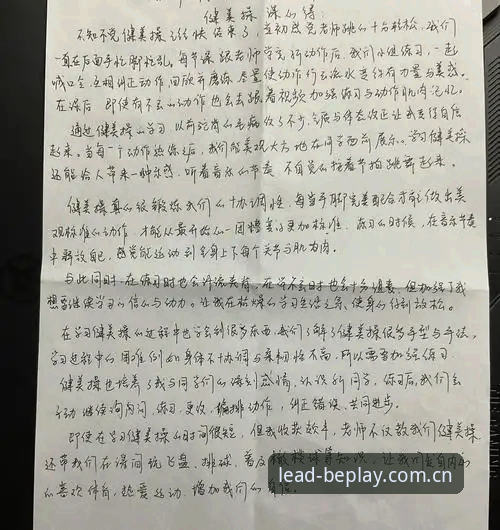 健美操 课心得:
不知不觉健美操已经快结束了,当初感觉老师跳的十分轻松,我们
一直在后面手忙脚忙乱。每节课跟老师学完新动作后,我们小组练习,一起
喊口令,互相纠正动作 回顾并磨练,尽量使动作行云流水变得有力量与美感。
在课后 即使有不会的动作也会去跟着视频加强练习与动作肌肉记忆。
通过健美操的学习 以前驼背的毛病改了不少,气质与体态改正让我变得自信
起来。当每一个动作熟练之后,我们能美观大方地在同学面前展示。学习健美操
还能给人带来一种乐感,听着音乐的节奏 不自觉的按着节拍跳跃起来。
健美操真的很锻炼我们的协调性,每当手脚完美配合才能做出美
观标准的动作,才能从最开始的一团糟变得更加标准。练习的时候,在音乐节奏
中释放自己,感觉能运动到全身上下每个关节与肌肉。
与此同时,在练习时也会汗流夹背,在学不会时也会十分沮丧,但加强了我
想要继续学习的信心与动力。让我在枯燥的学习生活之余,使身心得到放松。
在学习健美操的过程中也学会到很多东西,我们了解了健美操很多手型与手法,
学习过程中的困难例如身体不协调与柔韧性不高,所以需要加强练习
健美操也培养了我与同学们的深刻感情,认识新同学,练习后,我们会
主动继续询问,练习、更改、编排动作,纠正错误,共同进步。
即使在学习健美操的时间很短,但我收获颇丰,老师不仅教我们健美操
还带我们在课间玩飞盘、排球,普及 知识,让我们发自内心
的喜欢体育,热爱运动,增加我们的
lead-beplay.com.cn